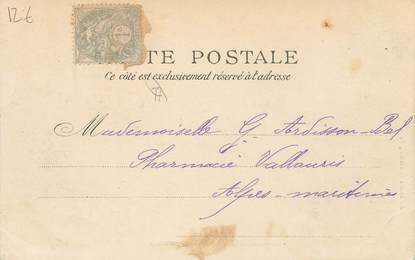 12€
CARTE POSTALE
Ce côté est exclusivement réservé à l'adresse
Mademoiselle G. Ardisson-Bel
Pharmacie Vallauris
Alpes-maritimes